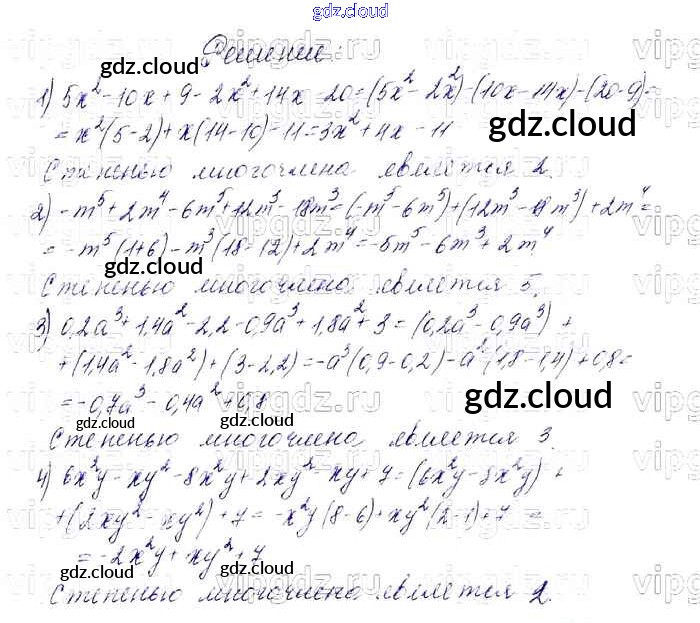 gdz.cloud
Решение:
1) 5x² - 10x + 9 - 2x² + 14x - 20 = (5x² - 2x²) - (10x - 14x) - (20 - 9) =
= x²(5-2) + x(14-10) - 11 = 3x² + 4x - 11
Степенью многочлена является 2.
2) -m⁵ + 2m⁴ - 6m⁵ + 12m³ - 18m³ = (-m⁵ - 6m⁵) + (12m³ - 18m³) + 2m⁴ =
= -m⁵(1+6) - m³(18-12) + 2m⁴ = -5m⁵ - 6m³ + 2m⁴
Степенью многочлена является 5.
3) 0,2a³ + 1,4a² - 2,2 - 0,9a³ + 1,8a² + 3 = (0,2a³ - 0,9a³) +
+ (1,4a² - 1,8a²) + (3 - 2,2) = -a³(0,9 - 0,2) - a²(1,8 - 1,4) + 0,8 =
= -0,7a³ - 0,4a² + 0,8
Степенью многочлена является 3.
4) 6x²y - xy² - 8x²y + 2xy² - xy + 7 = (6x²y - 8x²y) +
+ (2xy² - xy²) + 7 = -x²y(8-6) + xy²(2-1) + 7 =
= -2x²y + xy² + 7
Степенью многочлена является 2.